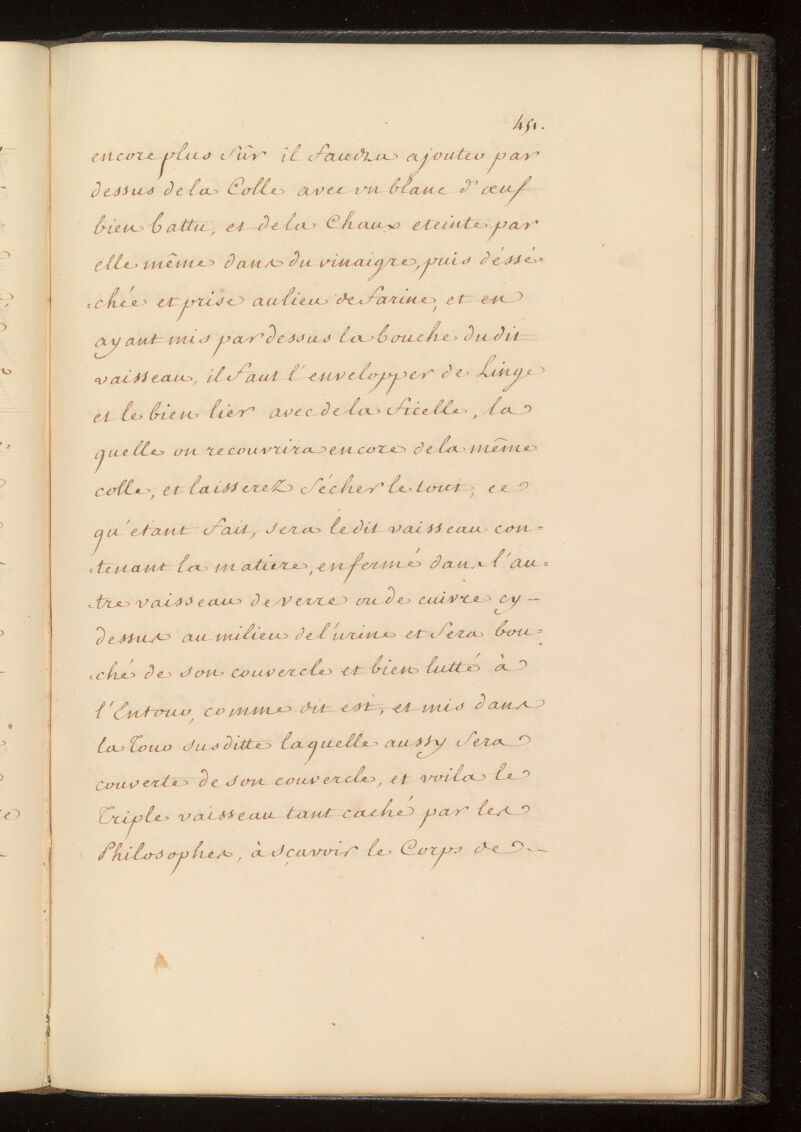 451.
encore plus sûr il faudra ajouter par
dessus de la Colle avec un blanc d'œuf
bien battu, et de la Chaux eteinte par
elle même dans du vinaigre, puis déssé=
=chée et prise au lieu de farine, et en
ayant mis par dessus la bouche du dit
vaisseau, il faut l'envelopper de Linge
et le bien lier avec de la ficelle, la
quelle on recouvrira encore de la même
colle, et laisserez sécher le tout, ce
qu'etant fait, sera le dit vaisseau con=
=tenant la matiére, enfermé dans l'au=
=tre vaisseau de verre ou de cuivre cy-
dessus au milieu de l'urine et sera bou=
=ché de son couvercle et bien lutté à
l'Entour, comme dit est, et mis dans
la Tour susditte laquelle aussy sera
couverte de son couvercle, et voila le
Triple vaisseau tant caché par les
Philosophes, à sçavoir le Corps de -